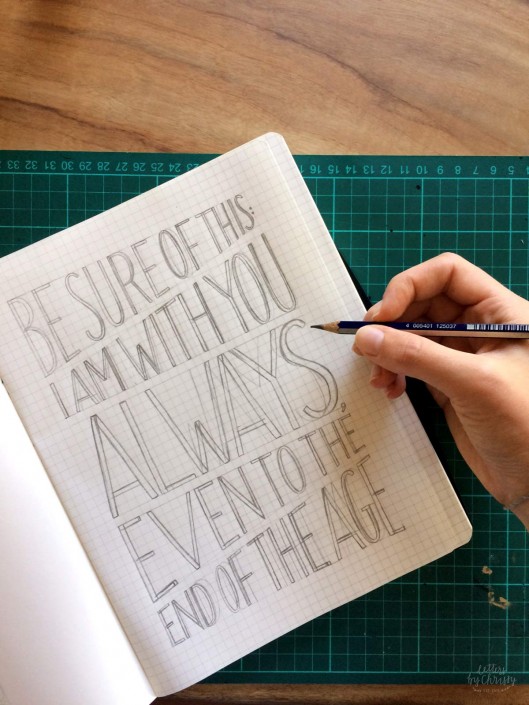 33 32 31 30 29 28 27 26 25 24 23
16 15 14 13 12 11 10 9 8 7 6 5
BE SURE OF THIS:
I AM WITH YOU
ALWAYS,
EVEN TO THE
END OF THE AGE
4 005401 125037
letters
by Christy